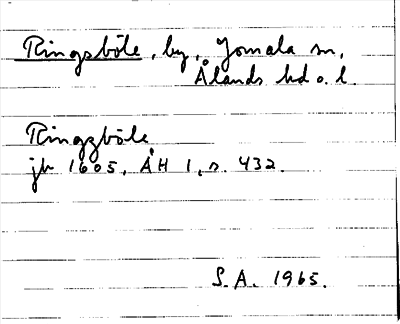 Ringsböle, by, Jomala sn,
Ålands hd o. l.
Ringzböle
jb 1605, ÅH 1, s. 432.
S.A. 1965.